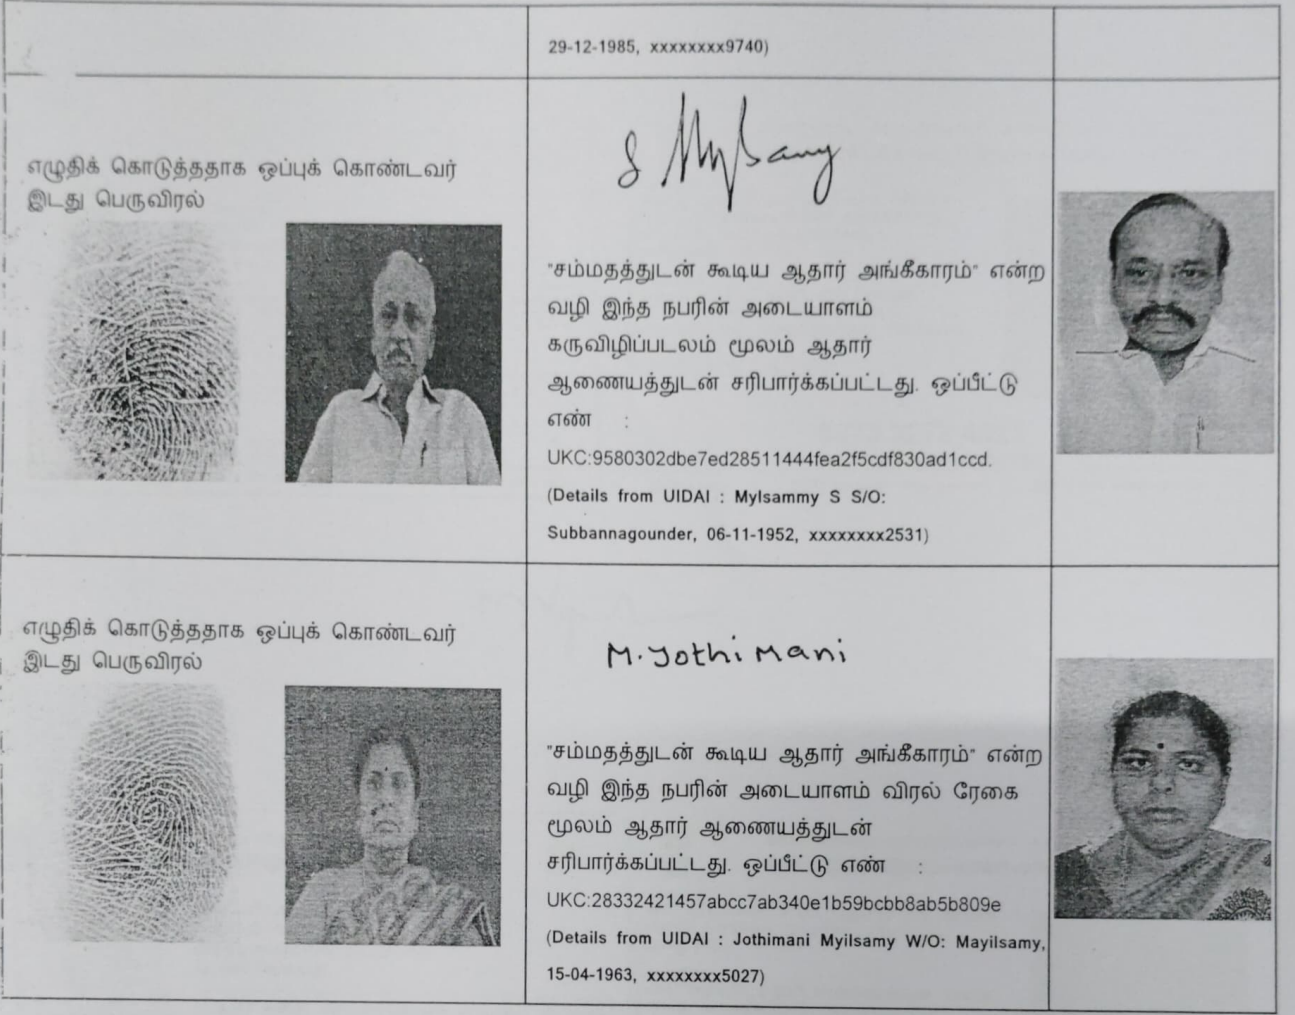 29-12-1985, xxxxxxxx9740)
எழுதிக் கொடுத்ததாக ஒப்புக் கொண்டவர்
இடது பெருவிரல்
S Mylsamy
"சம்மதத்துடன் கூடிய ஆதார் அங்கீகாரம்" என்ற
வழி இந்த நபரின் அடையாளம்
கருவிழிப்படலம் மூலம் ஆதார்
ஆணையத்துடன் சரிபார்க்கப்பட்டது. ஒப்பீட்டு
எண் :
UKC:9580302dbe7ed28511444fea2f5cdf830ad1ccd.
(Details from UIDAI : Mylsammy S S/O:
Subbannagounder, 06-11-1952, xxxxxxxx2531)
எழுதிக் கொடுத்ததாக ஒப்புக் கொண்டவர்
இடது பெருவிரல்
M.Jothi Mani
"சம்மதத்துடன் கூடிய ஆதார் அங்கீகாரம்" என்ற
வழி இந்த நபரின் அடையாளம் விரல் ரேகை
மூலம் ஆதார் ஆணையத்துடன்
சரிபார்க்கப்பட்டது. ஒப்பீட்டு எண் :
UKC:28332421457abcc7ab340e1b59bcbb8ab5b809e
(Details from UIDAI : Jothimani Myilsamy W/O: Mayilsamy,
15-04-1963, xxxxxxxx5027)